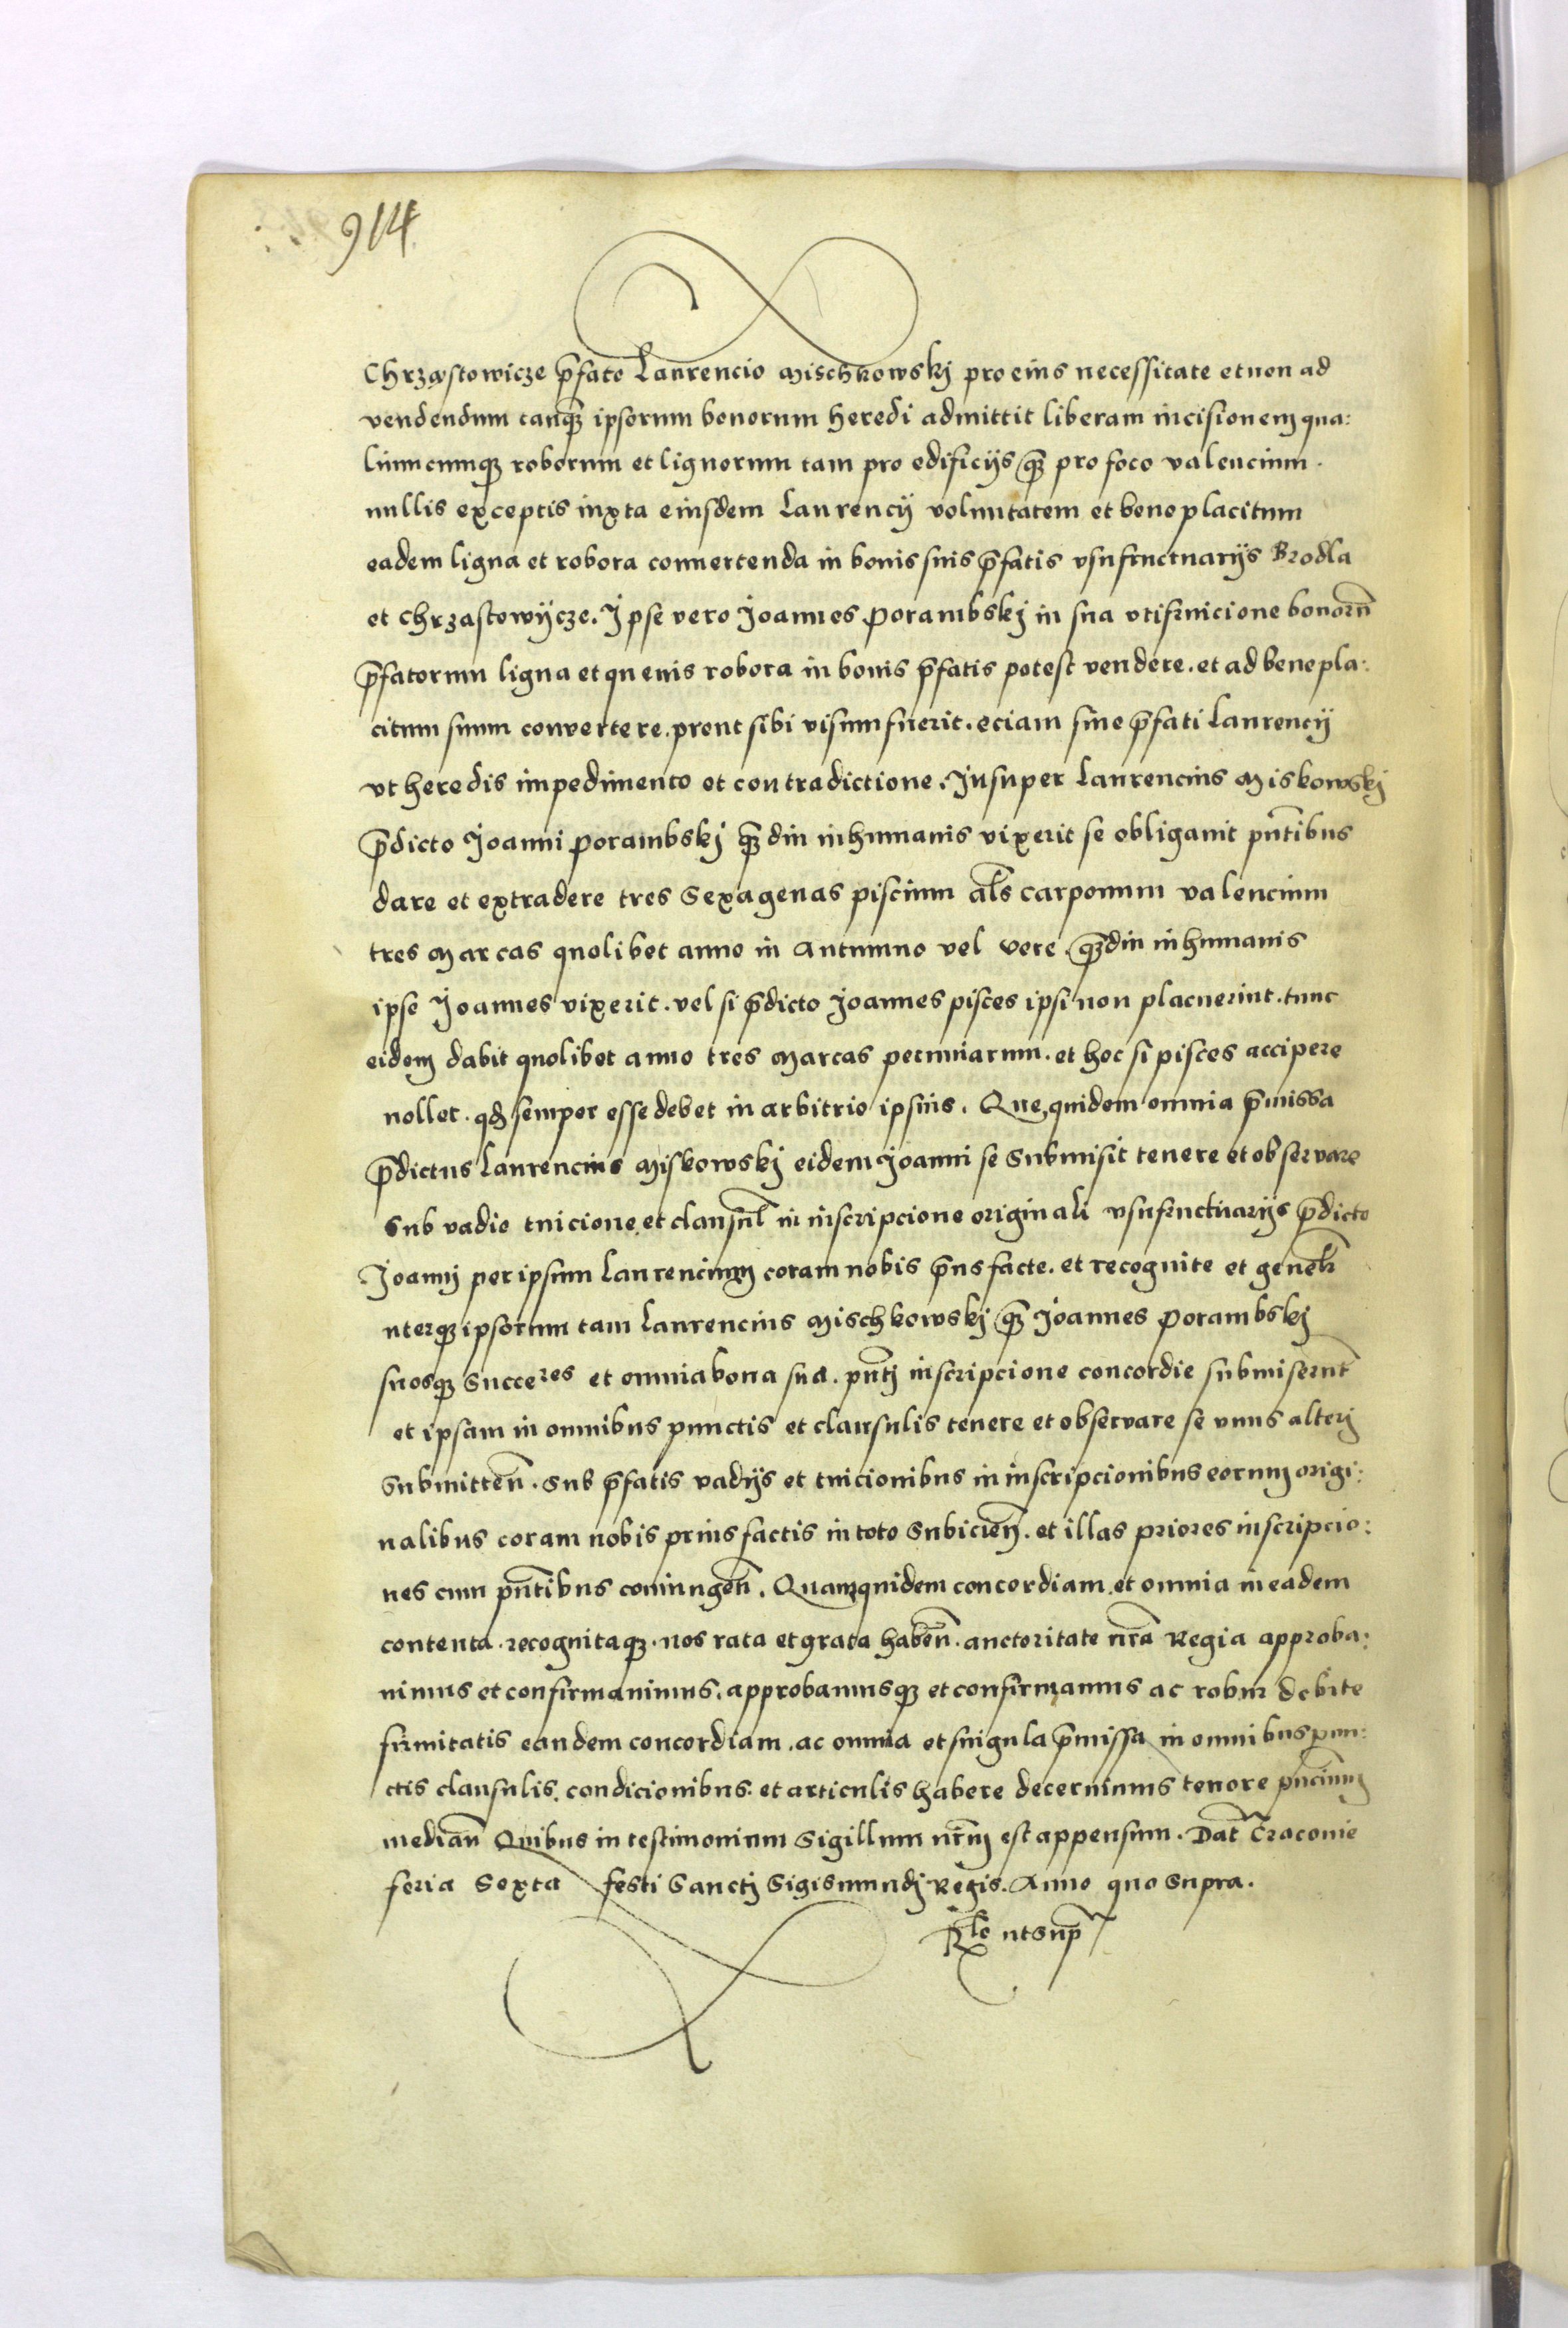 914
Chrząstowicze p̃fato Laurencio Mischkowskj pro eius necessitate et non ad
vendendum tanq̃ ipsorum bonorum heredi admittit liberam incisionem qua:
liumcumqꝫ roborum et lignorum tam pro edificijs q̃ꝫ pro foco valencium.
nullis exceptis iuxta eiusdem Laurencij voluntatem et beneplacitum
eadem ligna et robora conuertenda in bonis suis p̃fatis vsufructuarijs Brodla
et Chrzastowijcze. Ipse vero Joannes Porambskj in sua vtifruicione bonorũ
p̃fatorum ligna et queuis robora in bonis p̃fatis potest vendere. et ad benepla:
citum suum convertere. prout sibi visum fuerit. eciam sine p̃fati Laurencij
vt heredis impedimento et contradictione. Insuper Laurencius Miskowskj
p̃dicto Joanni Porambskj q̃ꝫdiu in humanis vixerit se obligauit pñtibus
dare et extradere tres Sexagenas piscium al̃s carponum valencium
tres Marcas quolibet anno in Autumno vel vere. q̃ꝫdiu in humanis
ipse Joannes vixerit. vel si p̃dicto Joannes pisces ipsi non placuerint. tunc
eidem dabit quolibet anno tres Marcas pecuniarum. et hoc si pisces accipere
nollet. qđ semper esse debet in arbitrio ipsius. Que quidem omnia p̃missa
p̃dictus Laurencius Miskowskj eidem Joanni se submisit tenere et observare
sub vadio tuicione et clausul̃ in inscripcione originali vsufructuarijs p̃dicto
Joannj per ipsum Laurencium coram nobis p̃us facte. et recognite et gener̃
uterqꝫ ipsorum tam Laurencius Mischkowskj q̃ꝫ Joannes Porambskj
suosqꝫ Succeres et omnia bona sua. pñtj inscripcione concordie submiserũt
et ipsam in omnibus punctis et clausulis tenere et observare se vnus alterj
Submitteñ. sub p̃fatis vadijs et tuicionibus in inscripcionibus eorum origi:
nalibus coram nobis prius factis in toto subicieñ. et illas priores inscripcio:
nes cum pñtibus coniungeñ. Quamquidem concordiam et omnia in eadem
contenta. recognitaqꝫ. nos rata et grata habeñ. auctoritate nr̃a Regia approba:
uimus et confirmauimus. approbamusqꝫ et confirmamus ac robur debite
firmitatis eandem concordiam. ac omnia et singula p̃missa in omnibus pun:
ctis clausulis. condicionibus. et articulis habere decernimus tenore pñcium
mediañ Quibus in testimonium Sigillum nr̃m est appensum. Dat̃ Cracouie
feria Sexta festi Sanctj Sigismundj Regis. Anno quo supra.
Rl̃o ut sup̃